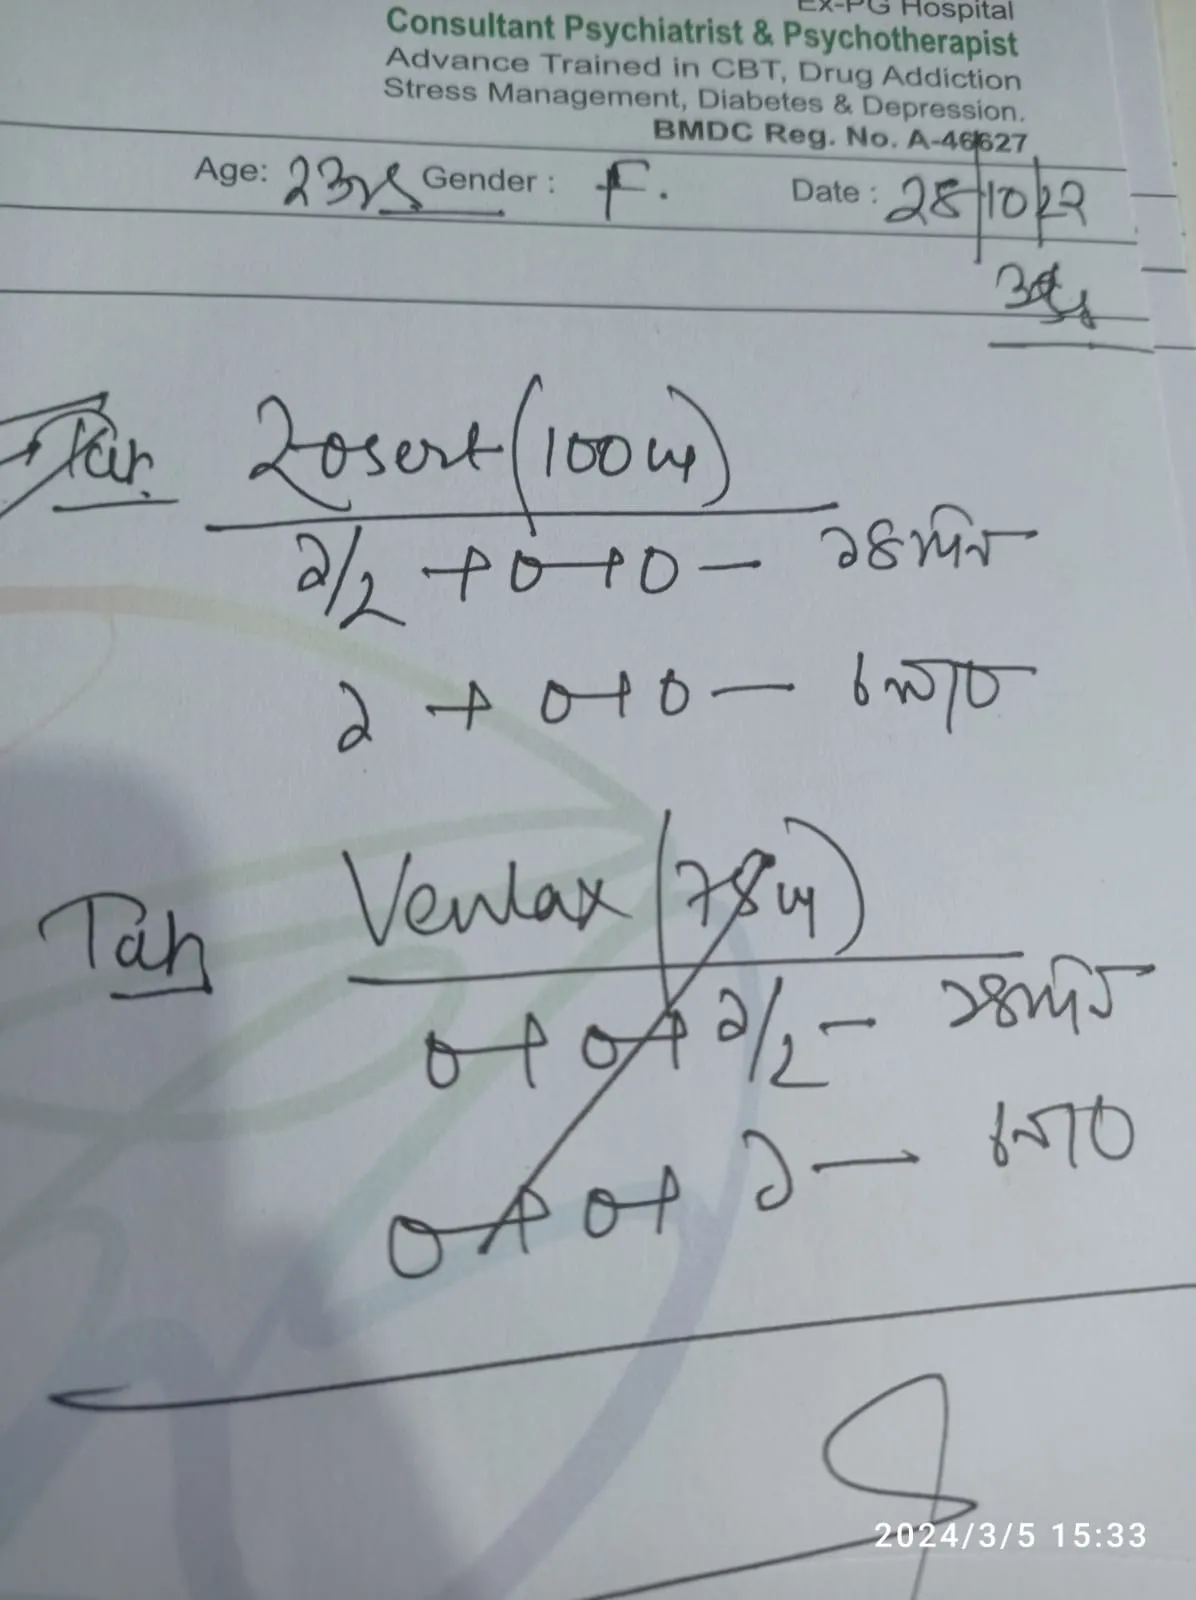 Ex-PG Hospital
Consultant Psychiatrist & Psychotherapist
Advance Trained in CBT, Drug Addiction
Stress Management, Diabetes & Depression.
BMDC Reg. No. A-46627
Age: 23 Gender : F. Date : 28/10/22
Tab Zosert (100
১/২ + 0 + 0 — ১৪ দিন
১ + 0 + 0 — ৬ মাস
Tab Venlax (75
0 + 0 + ১/২ — ১৪ দিন
0 + 0 + ১ —
2024/3/5 15:33